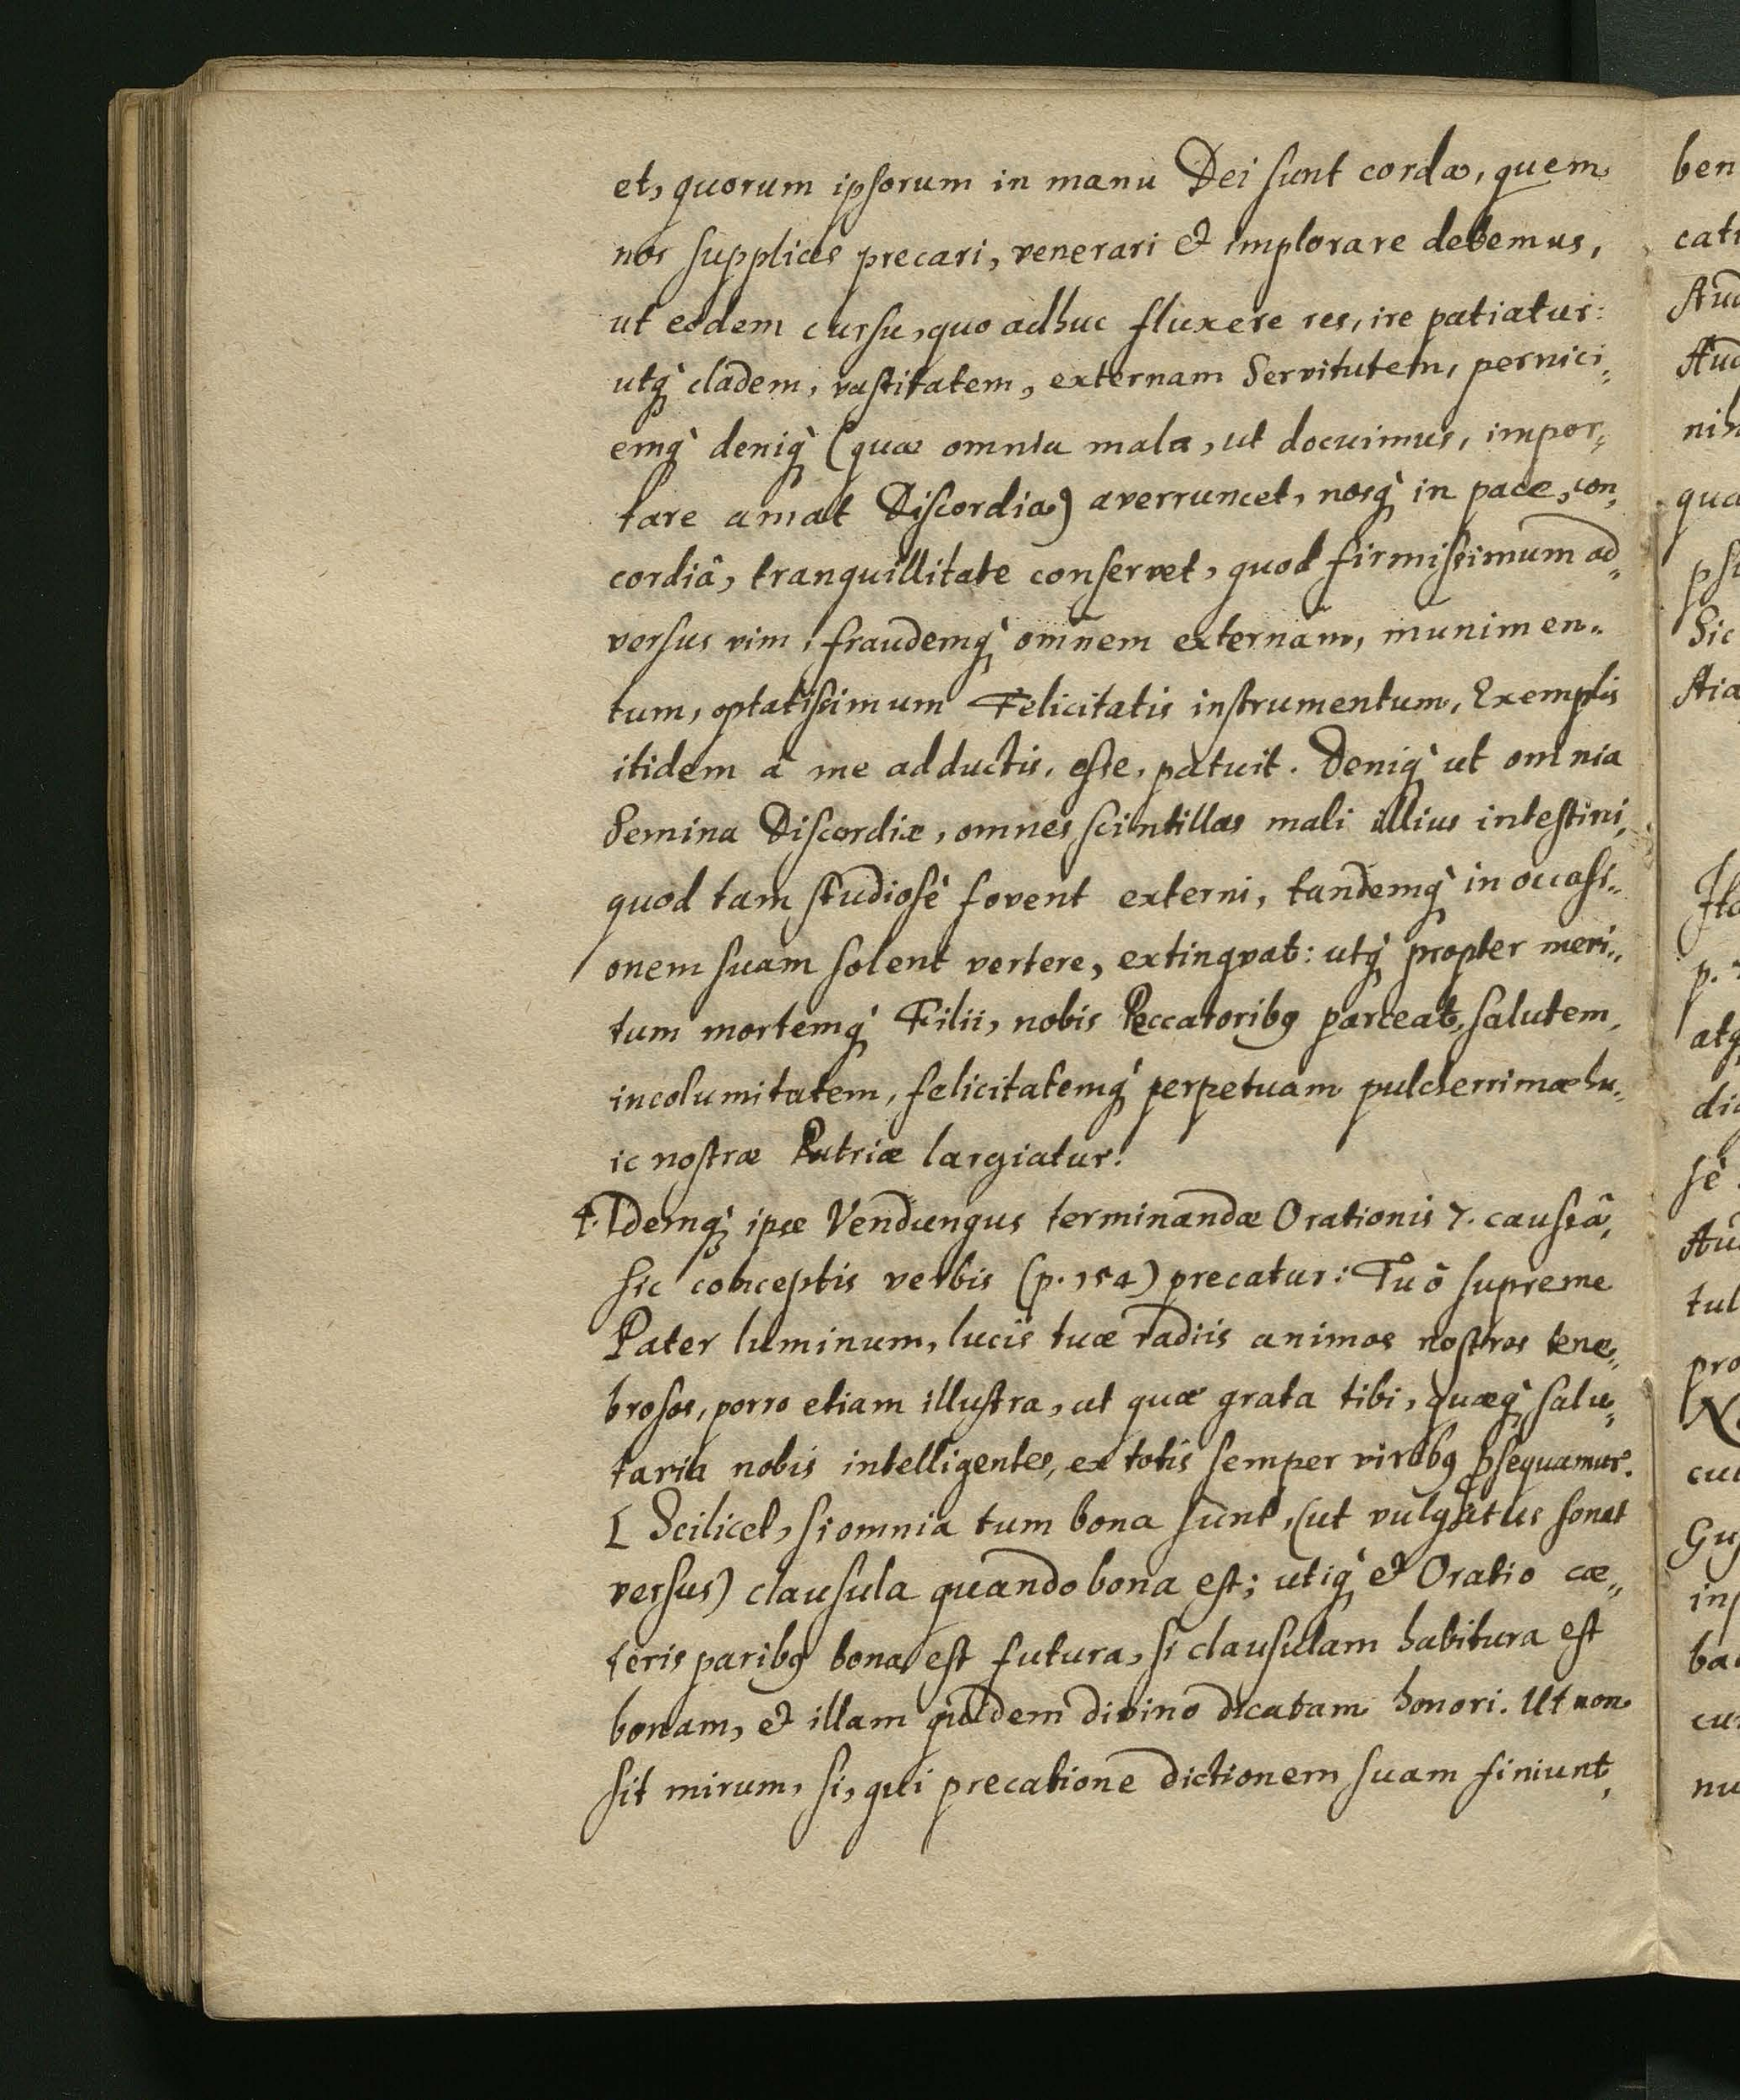 et, quorum ipsorum in manu Dei sunt corda, quem
nos supplices precari, venerari & implorare debemus,
ut eodem cursu, quo adhuc fluxere res, ire patiatur:
utq́ cladem, vastitatem, externam Servitutem, pernici„
emq́ deniq́ (quæ omnia mala, ut docuimus, impor„
tare amat Discordia) averruncet, nosq́ in pace, con„
cordiâ, tranquillitate conservet, quod firmissimum ad„
versus vim, fraudemq́ omnem externam, munimen„
tum, optatissimum Felicitatis instrumentum, Exemplis
itidem à me adductis, esse, patuit. Deniq́ ut omnia
Semina Discordiæ, omnes scintillas mali illius intestini,
quod tam studiosè fovent externi, tandemq́ in occasi„
onem suam solent vertere, extingvat: utq́ propter meri„
tum mortemq́ Filii, nobis Peccatoribꝰ parceat, salutem,
incolumitatem, felicitatemq́ perpetuam pulcherrimæ hu„
ic nostræ Patriæ largiatur!
4. Idemq́ ipse Vendungus terminandæ Orationis 7. caussâ,
sic conceptis verbis (p. 154) precatur: Tu ô supreme
Pater luminum, lucis tuæ radiis animos nostros tene„
brosos, porro etiam illustra, ut quæ grata tibi, quæq́ salu„
taria nobis intelligentes, ex totis semper viribꝰ ꝓsequamur.
[ Scilicet, si omnia tum bona sunt, (ut vulgatus sonat
versus) clausula quando bona est; utiq́ & Oratio cæ„
teris paribꝰ bona est futura, si clausulam habitura est
bonam, & illam quidem divino dicatam honori. Ut non
sit mirum, si, qui precatione dictionem suam finiunt,